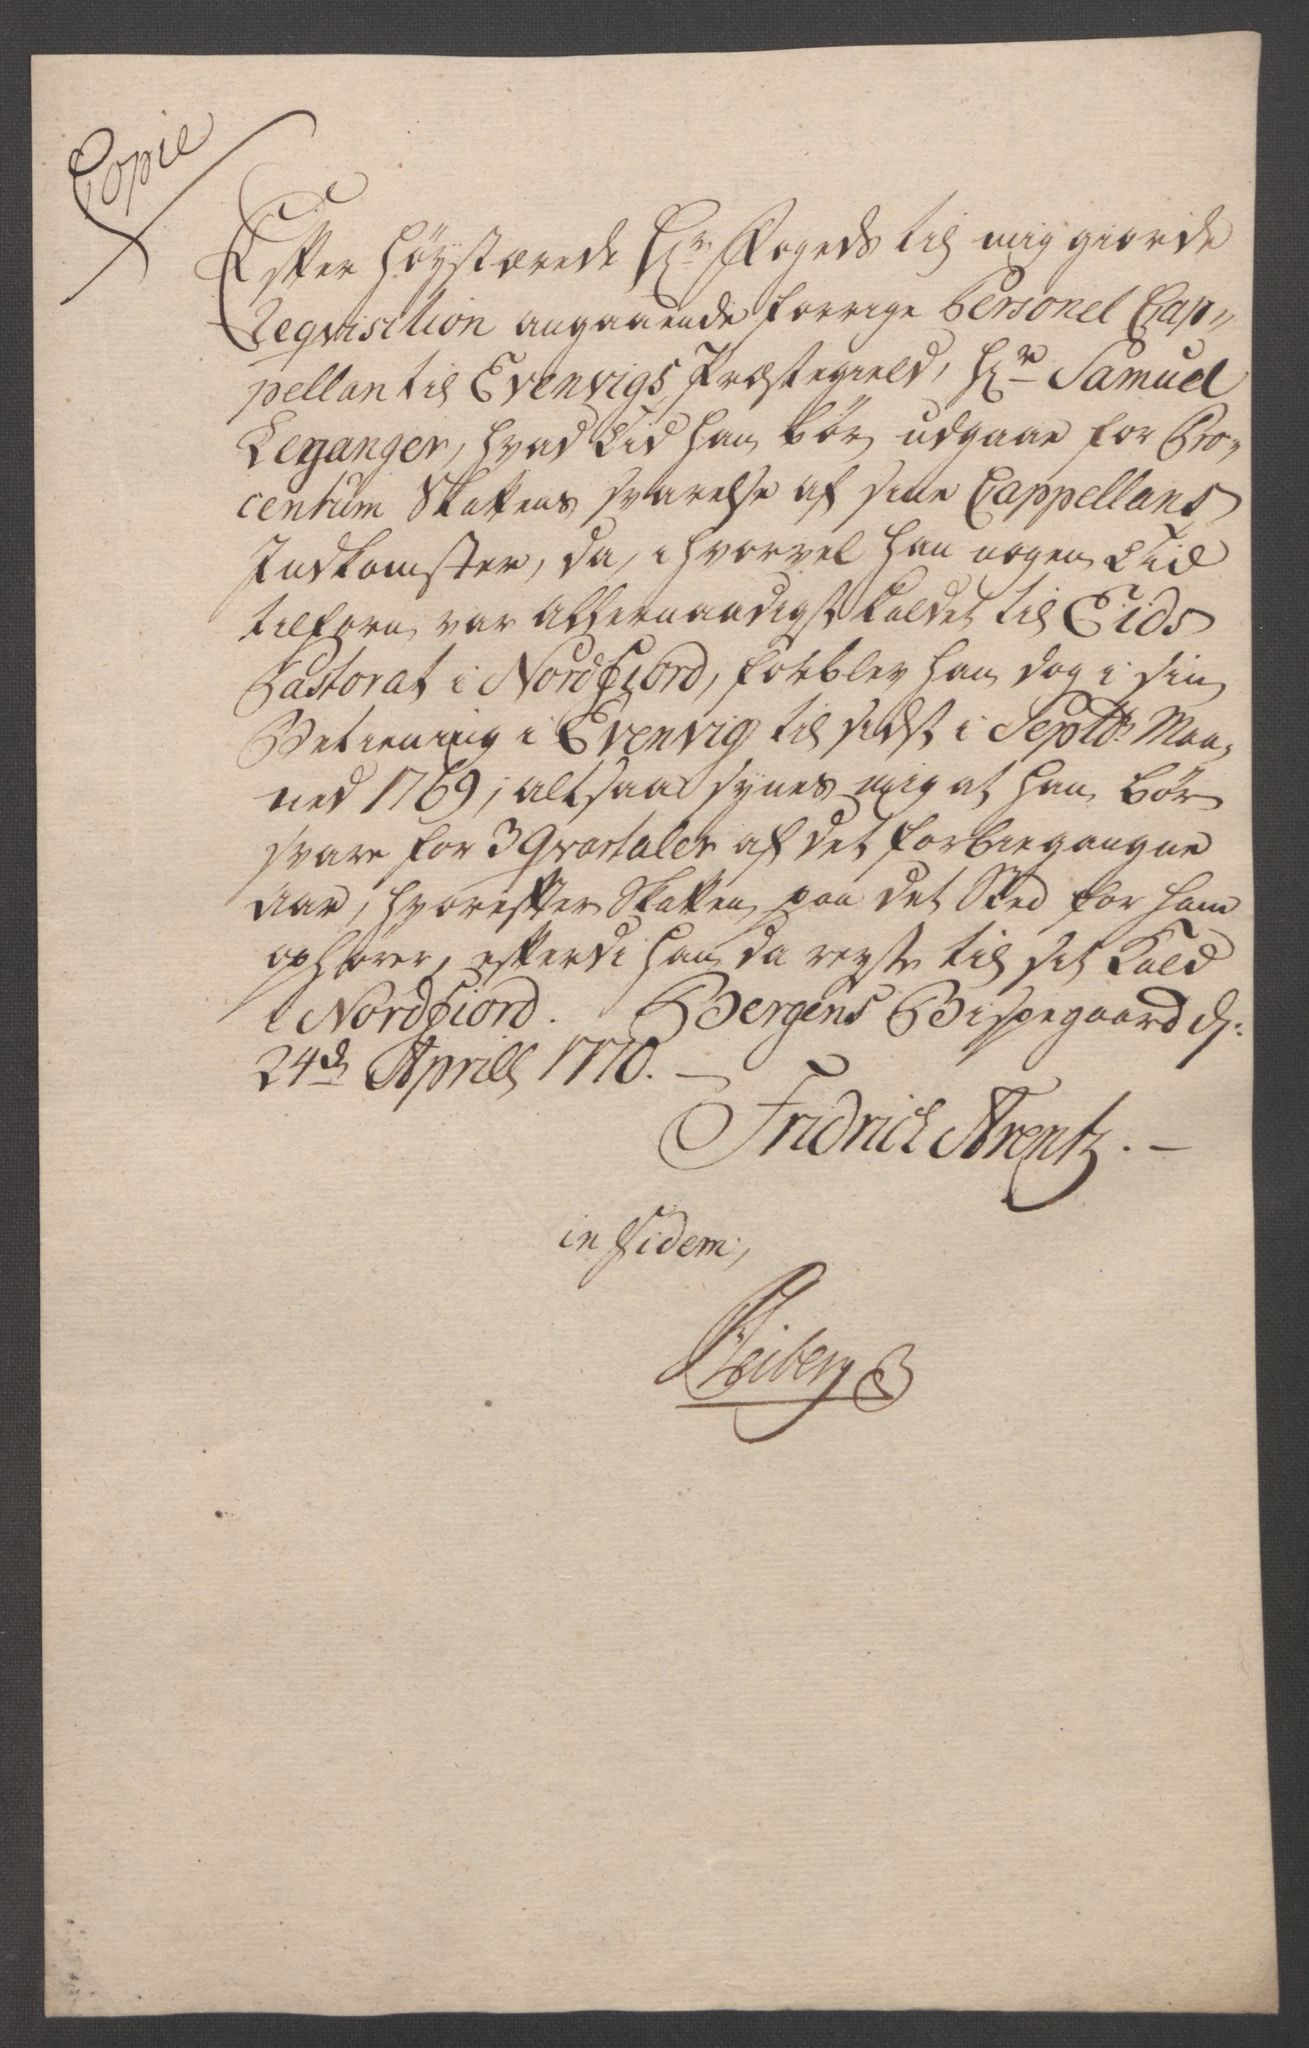 Copie
Efter Høystærede Hr Fogeds til mig giorde
Reqvisition angaaende forrige Personel Cap„
pellan til Evenvigs Præstegield, Hr Samuel
Leganger, hvad Tid han bør udgaae for Pro„
centum Skattens svarelse af sine Cappellans
Indkomster, da, ihvorvel han nogen Tid
tilforn var allernaadigst kaldet til Eids
Pastorat i Nordfiord, forblev han dog i sin
Betiening i Evenvig til sidst i Septbr Maa„
ned 1769; altsaa synes mig at han bør
svare for 3 Qvartaler af det forbiegangne
Aar, hvorefter Skatten paa det Sted for ham
ophører, efterdi han da reyste til sit Kald
i Nordfiord. Bergens Bispegaard d:
24de Aprill 1770. —
Fridrich Arentz. —
in Fidem,
Heiberg